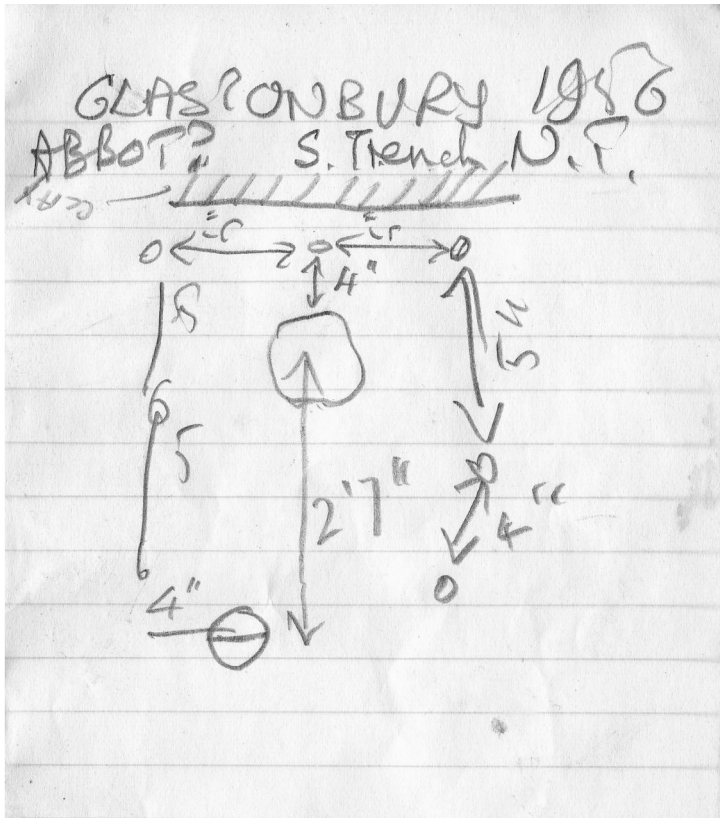 GLASTONBURY 1956
ABBOT? S. Trench N.T.
CLAY
5" 5"
4"
5
5"
5
2'7"
4"
4"